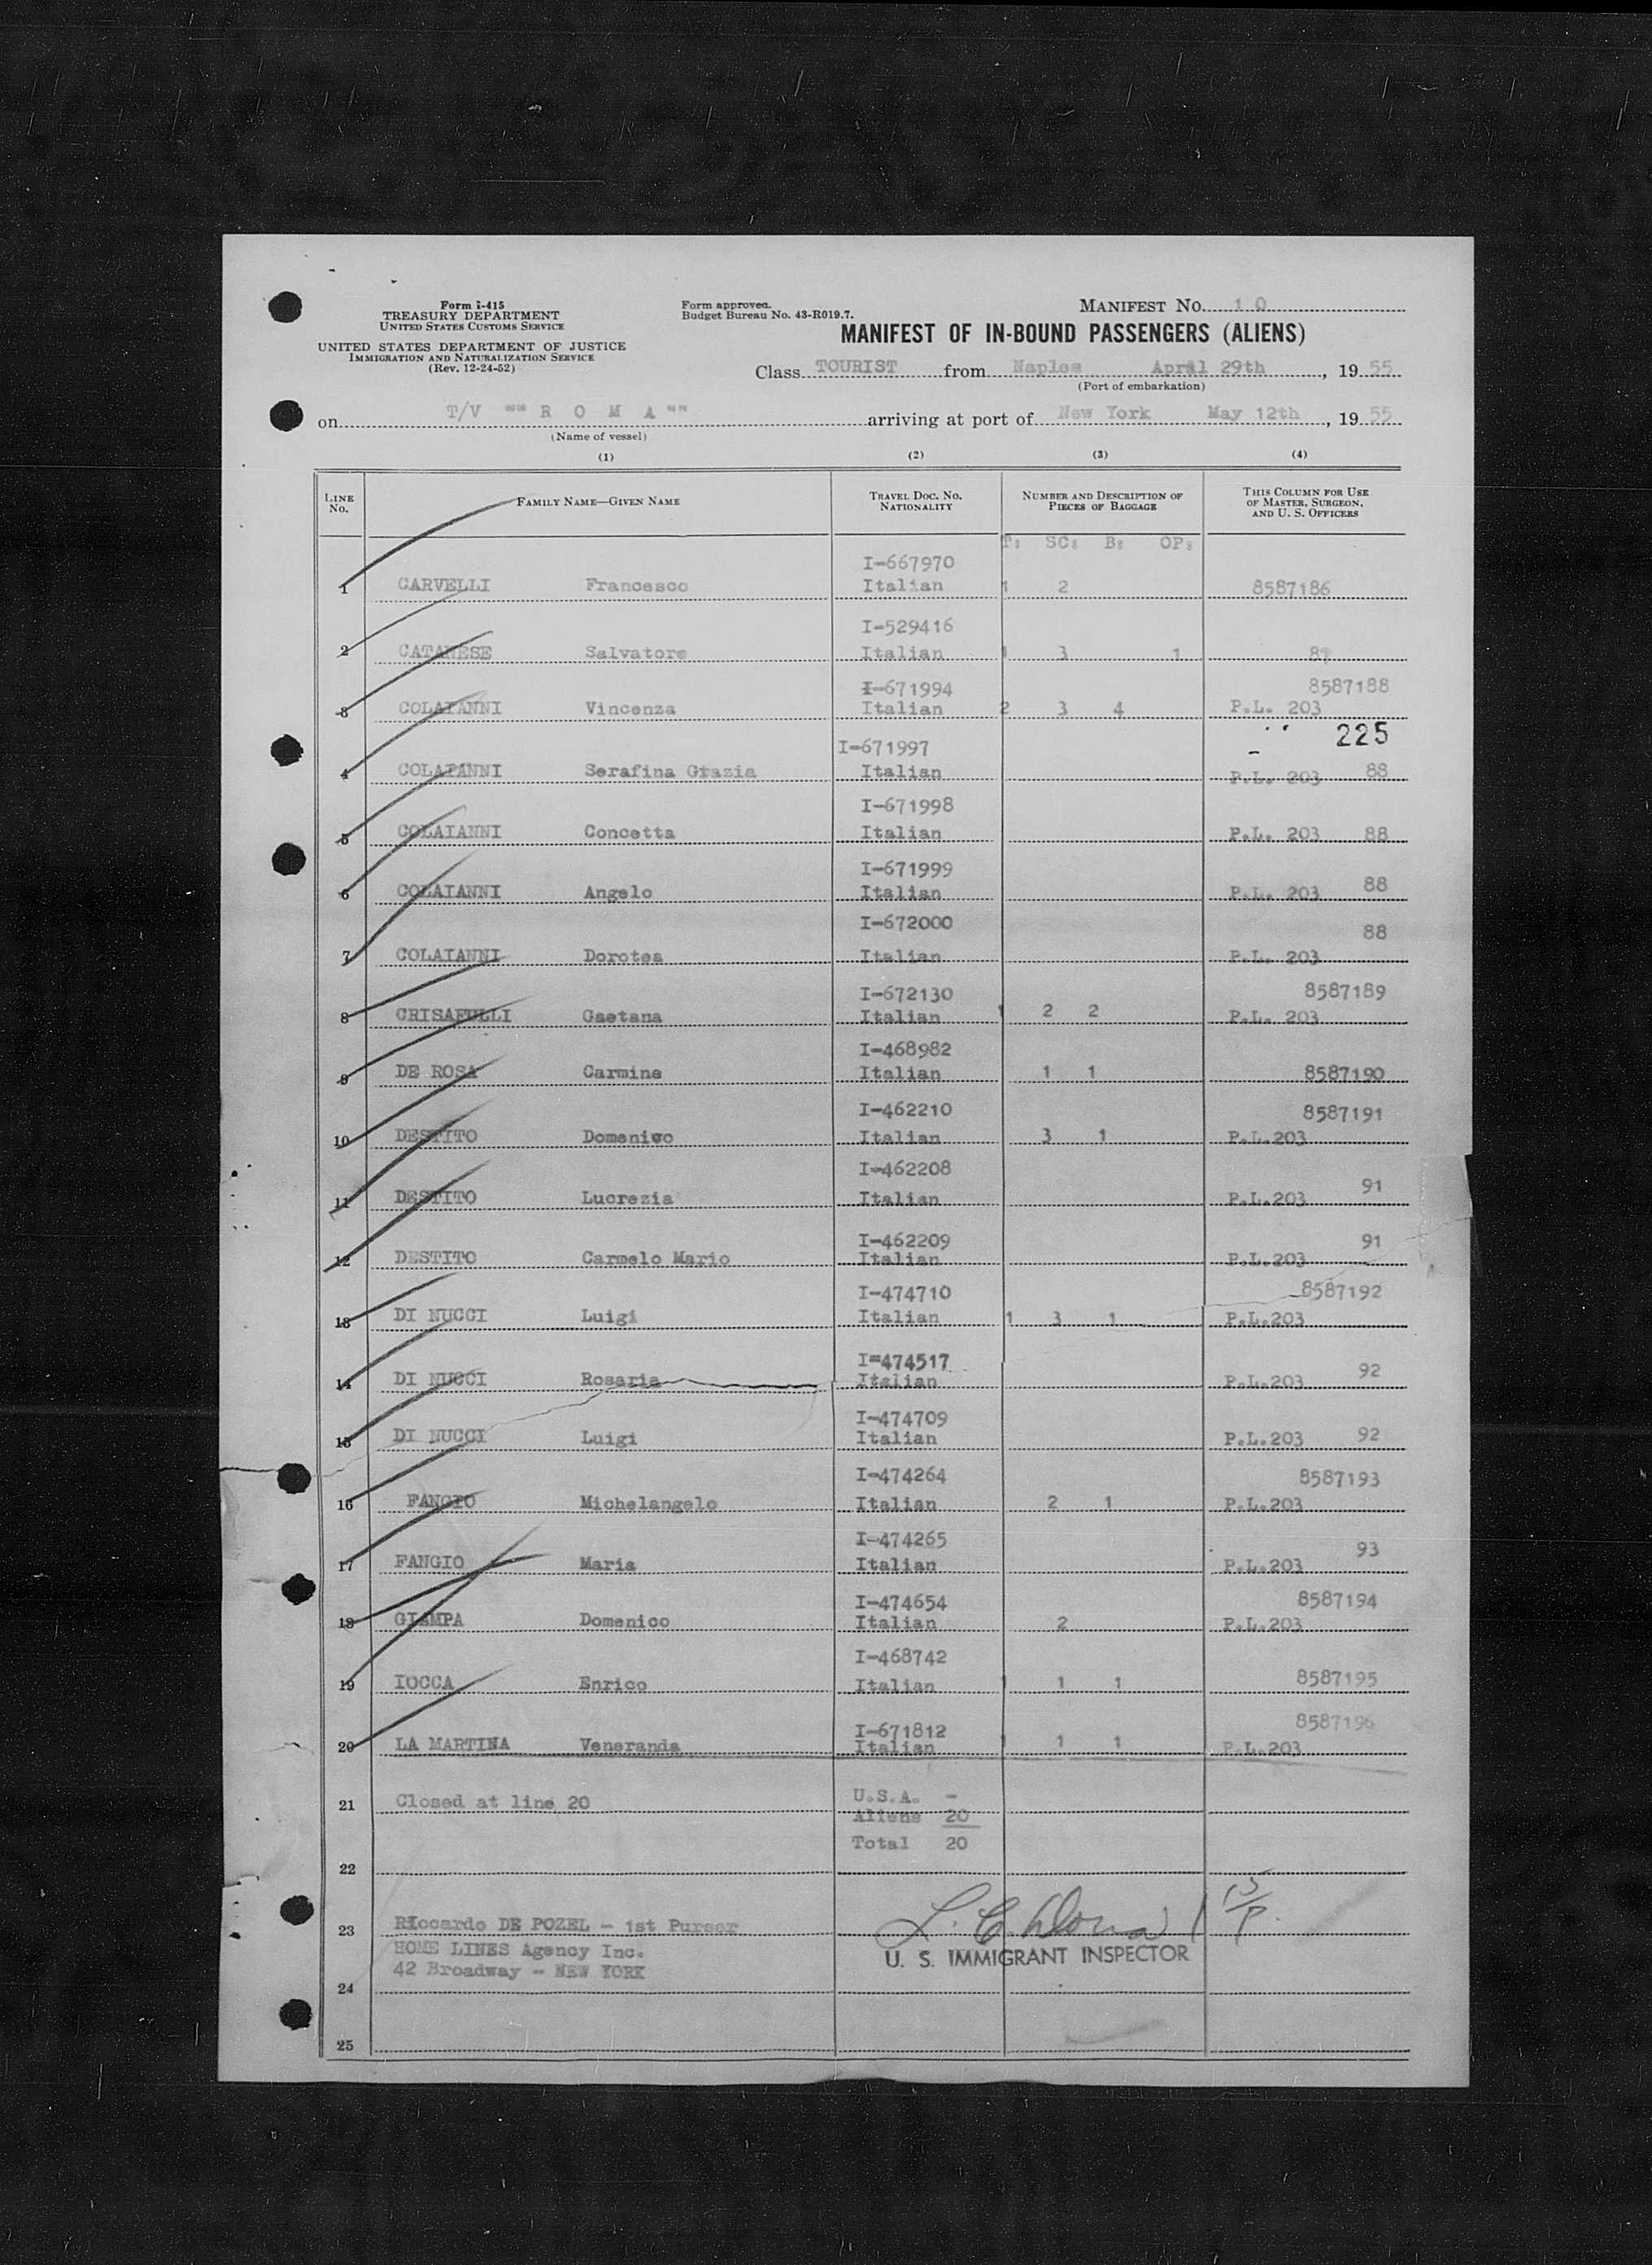 Form I-415
TREASURY DEPARTMENT
UNITED STATES CUSTOMS SERVICE
UNITED STATES DEPARTMENT OF JUSTICE
IMMIGRATION AND NATURALIZATION SERVICE
(Rev. 12-24-52)
Form approved.
Budget Bureau No. 43-R019.7.
MANIFEST NO. 10
MANIFEST OF IN-BOUND PASSENGERS (ALIENS)
Class TOURIST from Naples April 29th, 1955
(Port of embarkation)
on T/V ""R O M A"" arriving at port of New York May 12th, 1955
(Name of vessel)
(1) (2) (3) (4)
LINE NO. FAMILY NAME—GIVEN NAME TRAVEL DOC. NO. NATIONALITY NUMBER AND DESCRIPTION OF PIECES OF BAGGAGE THIS COLUMN FOR USE OF MASTER, SURGEON, AND U. S. OFFICERS
T: SC: B: OP:
I-667970
1 CARVELLI Francesco Italian 1 2 8587186
I-529416
2 CATANESE Salvatore Italian 1 3 1 87
I-671994 8587188
3 COLAIANNI Vincenza Italian 2 3 4 P.L. 203
225
I-671997
4 COLAIANNI Serafina Grazia Italian P.L. 203 88
I-671998
5 COLAIANNI Concetta Italian P.L. 203 88
I-671999
6 COLAIANNI Angelo Italian P.L. 203 88
I-672000
88
7 COLAIANNI Dorotea Italian P.L. 203
I-672130 8587189
8 CRISAFULLI Gaetana Italian 1 2 2 P.L. 203
I-468982
9 DE ROSA Carmine Italian 1 1 8587190
I-462210 8587191
10 DESTITO Domenico Italian 3 1 P.L.203
I-462208
91
11 DESTITO Lucrezia Italian P.L.203
I-462209 91
12 DESTITO Carmelo Mario Italian P.L.203
I-474710 8587192
13 DI NUCCI Luigi Italian 1 3 1 P.L.203
I=474517 92
14 DI NUCCI Rosaria Italian P.L.203
I-474709
15 DI NUCCI Luigi Italian P.L.203 92
I-474264 8587193
16 FANGIO Michelangelo Italian 2 1 P.L.203
I-474265 93
17 FANGIO Maria Italian P.L.203
I-474654 8587194
18 GIAMPA Domenico Italian 2 P.L.203
I-468742
19 IOCCA Enrico Italian 1 1 1 8587195
I-671812 8587196
20 LA MARTINA Veneranda Italian 1 1 1 P.L.203
21 Closed at line 20 U.S.A. -
Aliens 20
Total 20
22
23 Riccardo DE POZEL - 1st Purser
HOME LINES Agency Inc.
U. S. IMMIGRANT INSPECTOR
42 Broadway - NEW YORK
24
25